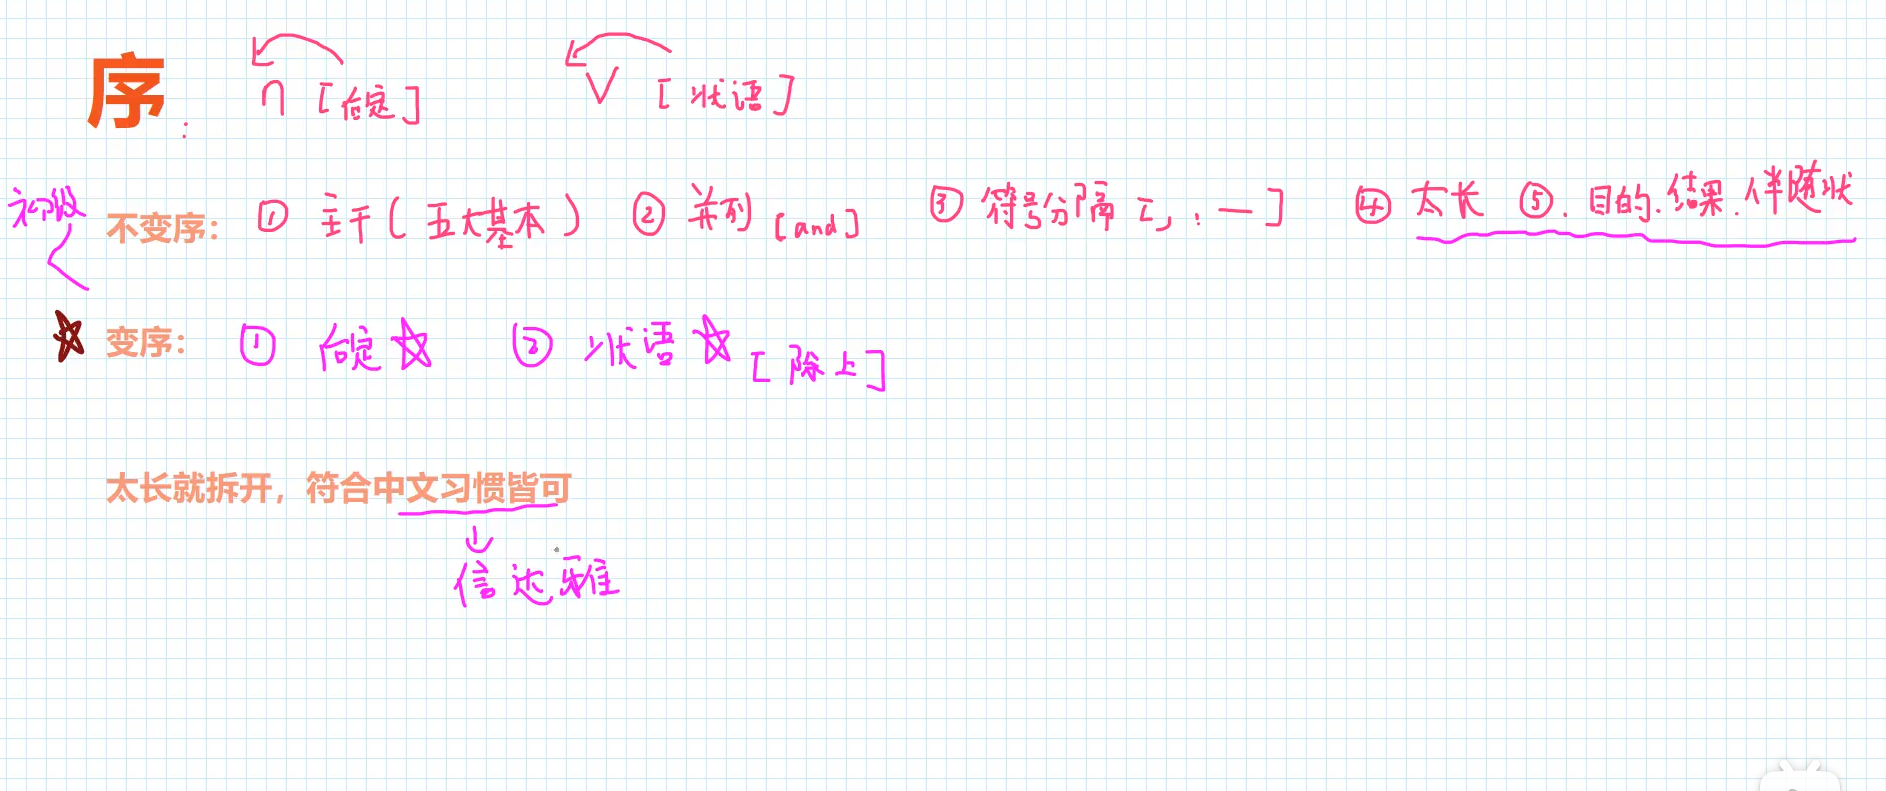 序： n [后定] V [状语]
初级
不变序： ① 主干（五大基本） ② 并列 [and] ③ 符号分隔 [, : —] ④ 太长 ⑤. 目的. 结果. 伴随状
☆ 变序： ① 后定☆ ② 状语☆ [除上]
太长就拆开，符合中文习惯皆可
↓
信达雅